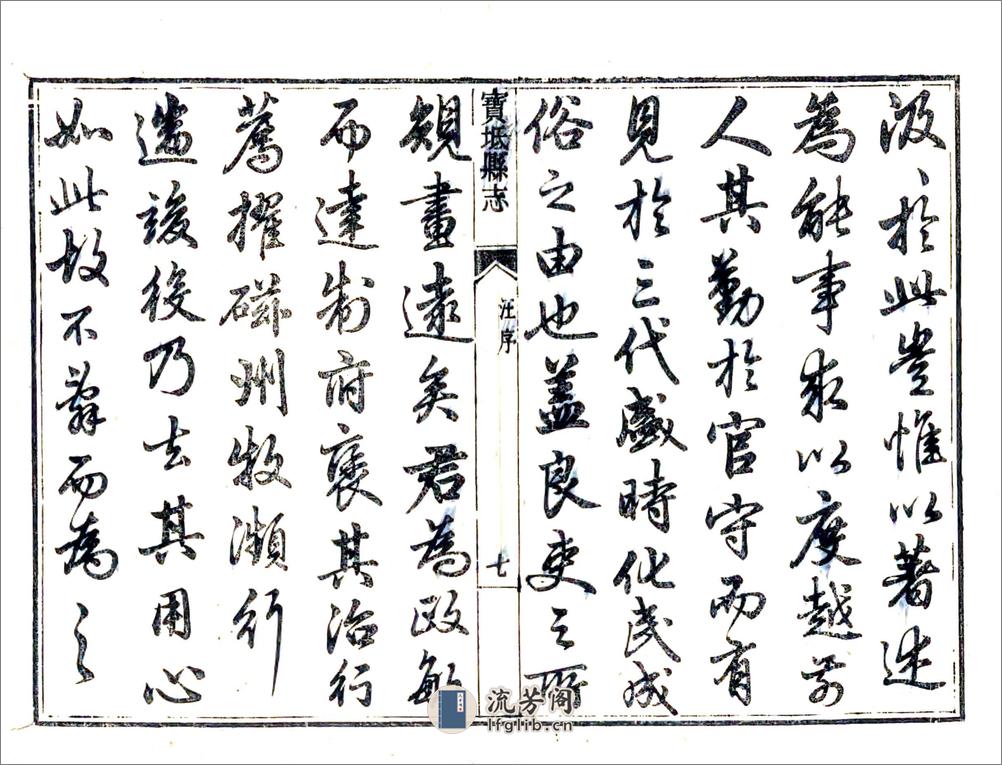 汲於此豈惟以著述
為能事求以度越前
人其勤於官守而有
見於三代盛時化民成
俗之由也蓋良吏之所
寶坻縣志
汪序
七
規畫遠矣君為政敏
而達制府褒其治行
薦擢磁州牧瀕行
遄竣後乃去其用心
如此故不辭而為之
流芳阁
lfglib.cn